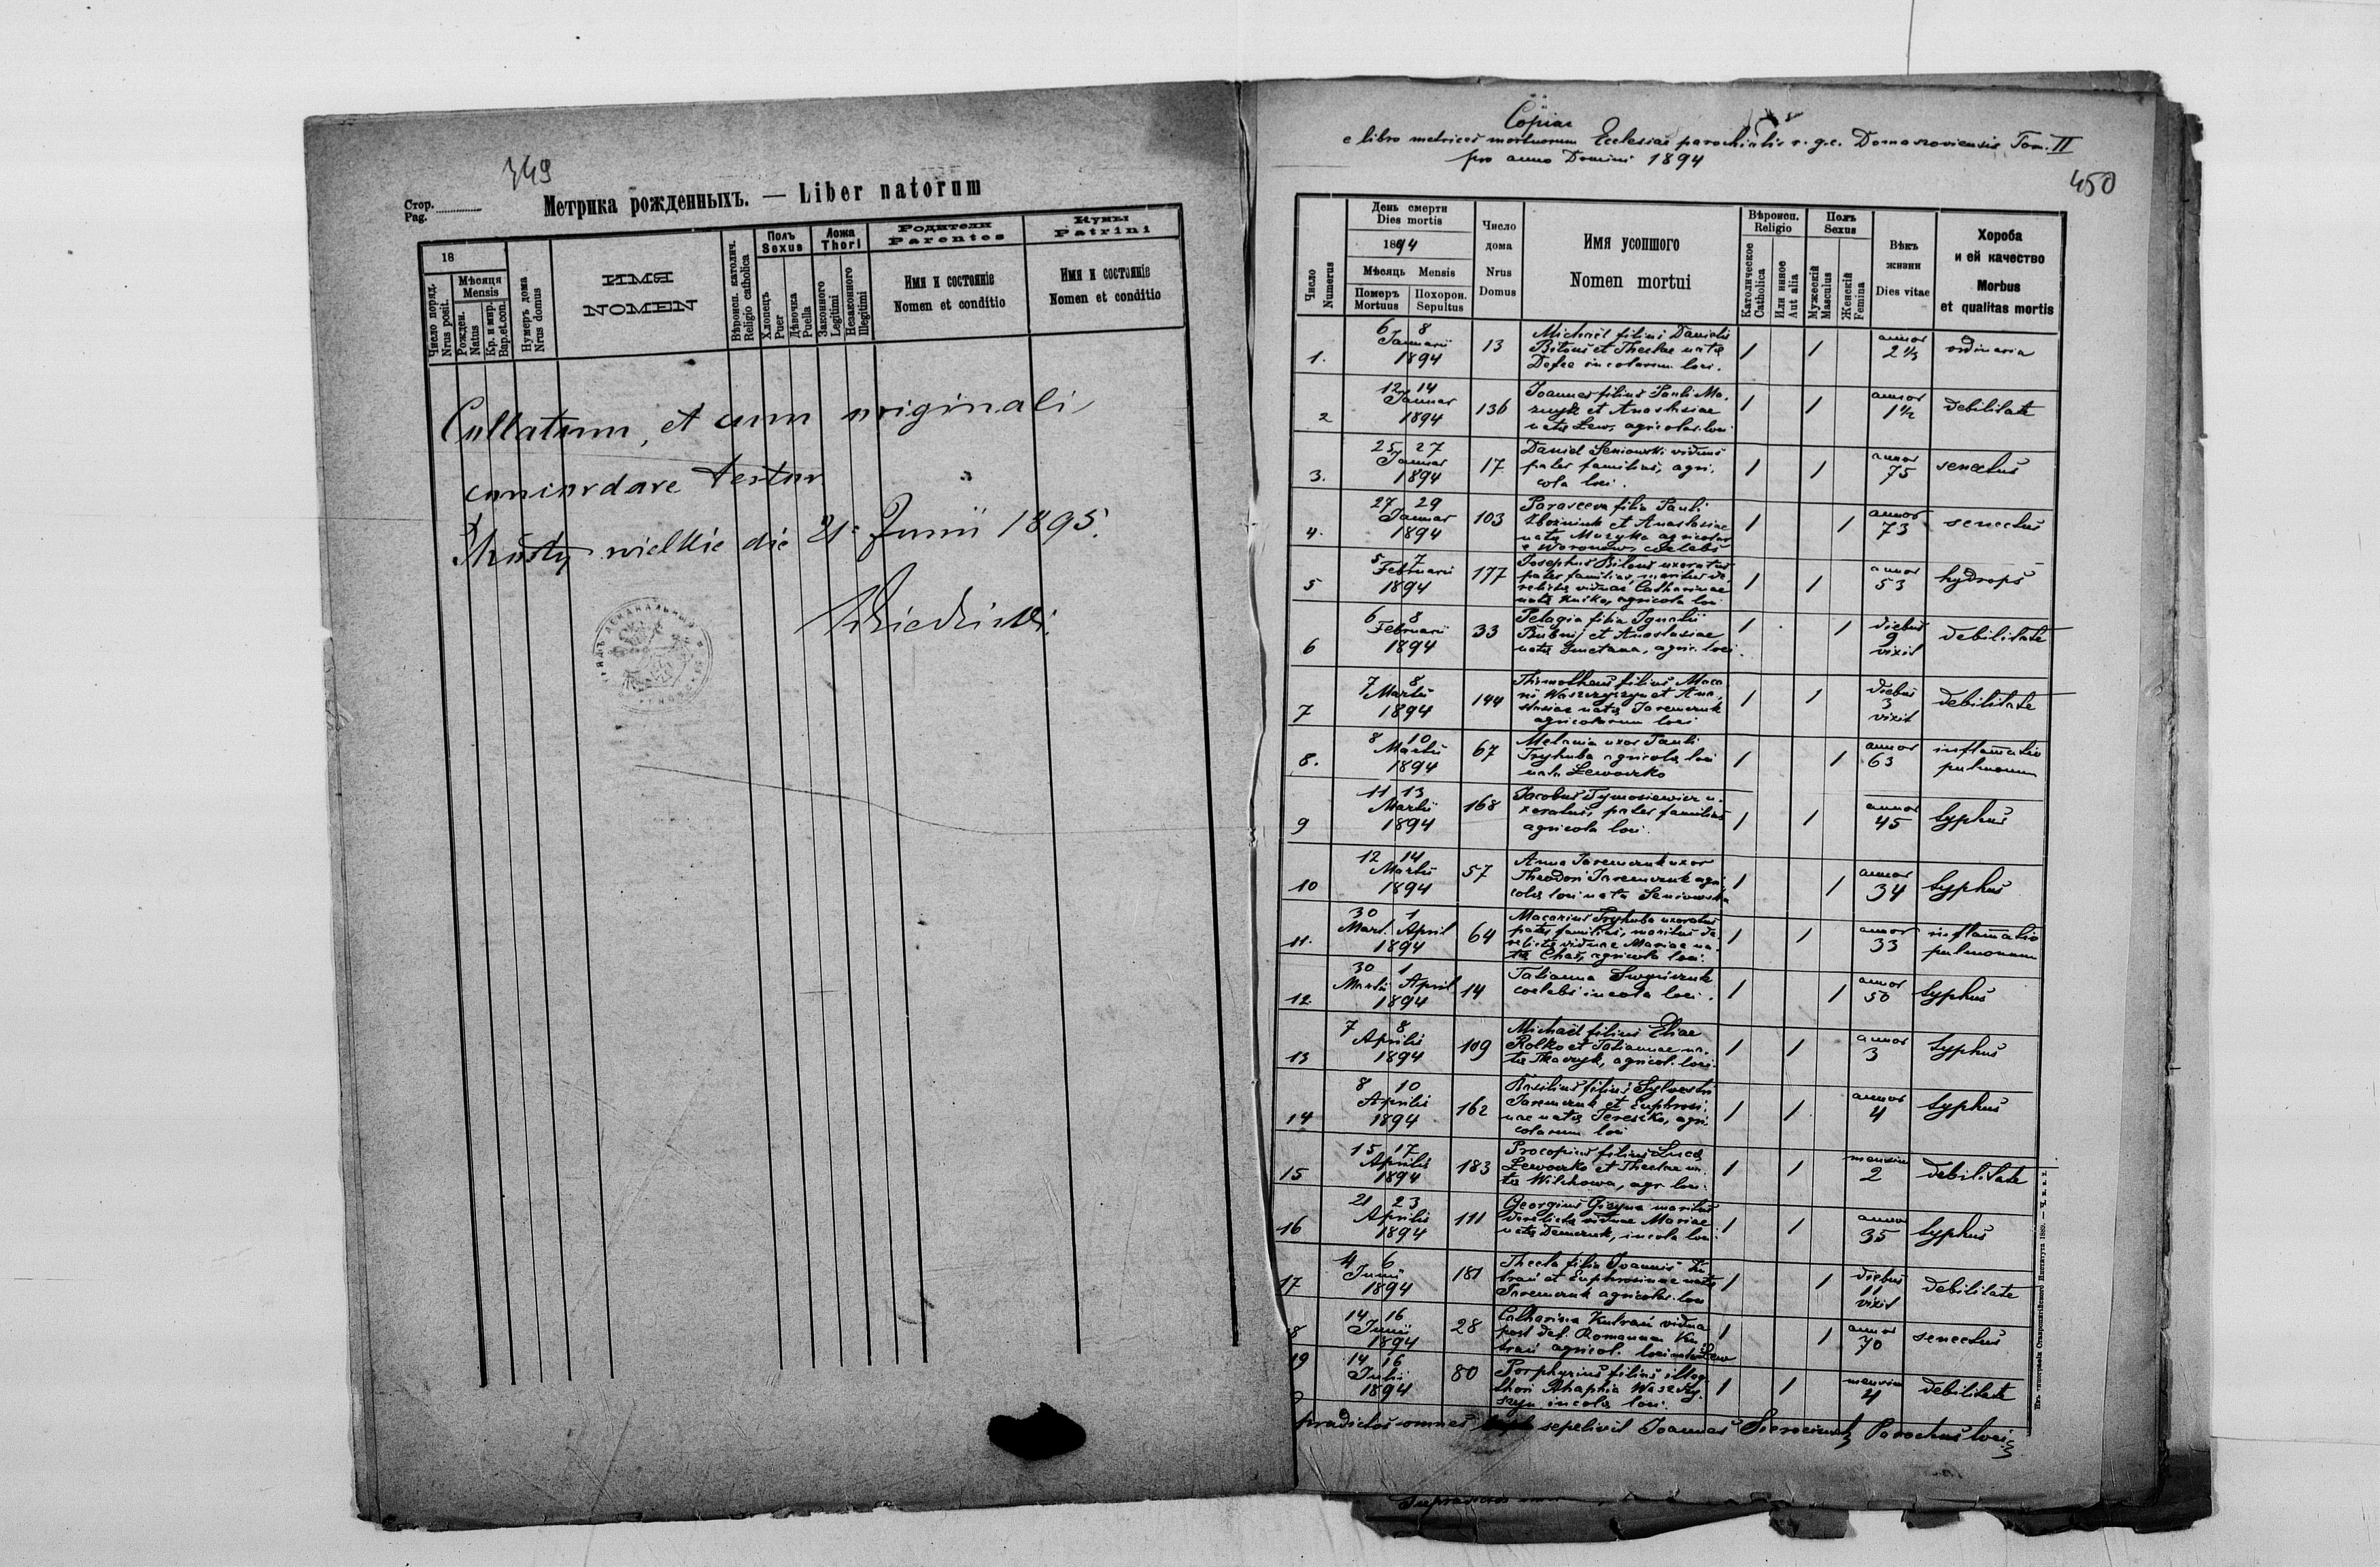 349
Стор.
Pag.
Метрика рожденныхъ. — Liber natorum
18
Число поряд.
Nrus posit.
Мѣсяця
Mensis
Рожден.
Natus
Кр. и мир.
Bap.et.con.
Нумеръ дома
Nrus domus
ИМЯ
NOMEN
Вѣроисп. католич.
Religio catholica
Полъ
Sexus
Хлопець
Puer
Дѣвочка
Puella
Ложа
Thori
Законного
Legitimi
Незаконного
Illegitimi
Родители
Parentes
Имя и состояніе
Nomen et conditio
Кумы
Patrini
Имя и состояніе
Nomen et conditio
Collatum, et cum originali
concordare testor
wielkie die 21. Junii 1895.
Copiae
e libro metrices mortuorum Ecclesiae parochialis r. g. c. Domaszoviensis Tom. II
pro anno Domini 1894
450
Число
Numerus
День смерти
Dies mortis
1894
Мѣсяць Mensis
Померъ
Mortuus
Похорон.
Sepultus
Число
дома
Nrus
Domus
Имя усопшого
Nomen mortui
Вѣроисп.
Religio
Католическое
Catholica
Или инное
Aut alia
Полъ
Sexus
Мужескій
Masculus
Женскій
Femina
Вѣкъ
жизни
Dies vitae
Хороба
и ей качество
Morbus
et qualitas mortis
1. 6 8 Januarii 1894 13 Michael filius Danielis
Bilous et Theclae natae
incolarum loci. 1 1 annor 2 1/3 ordinaria
2 12 14 Januar 1894 136 Joannes filius Pauli Ma-
zuryk et Anastasiae
natae Lew, agricolar. loci 1 1 annor 1 1/2 debilitate
3. 25 27 Januar 1894 17 Daniel Seniowski viduus
pater familias, agri-
cola loci. 1 1 annor 75 senectus
4. 27 29 Januar 1894 103 Parasceva filia Pauli
et Anastasiae
natae Muzyka agricolar
e Woronów, coelebs 1 1 annor 73 senectus
5 5 7 Februarii 1894 177 Josephus Bilous uxoratus
pater familias, maritus de-
relictae viduae Catharinae
natae agricola loci 1 1 annor 53 hydrops
6 6 8 Februarii 1894 33 Pelagia filia Ignatii
Bubnij et Anastasiae
natae Smetana, agric. loci 1 1 diebus 9 vixit debilitate
7 7 8 Martii 1894 144 Thimotheus filius Maca-
rii Waszczyszyn et Ana-
stasiae natae Jaremczuk
agricolarum loci 1 1 diebus 3 vixit debilitate
8. 8 10 Martii 1894 67 Melania uxor Pauli
Tryhuba agricolae loci
nata Lewoczko 1 1 annor 63 inflamatio
pulmonum
9 11 13 Martii 1894 168 Jacobus Tymosiewicz u-
xoratus, pater familias
agricola loci. 1 1 annor 45 typhus
10 12 14 Martii 1894 57 Anna Jaremczuk uxor
Theodori Jaremczuk agri-
colae loci nata Seniowska 1 1 annor 34 typhus
11. 30 1 Mart. April 1894 64 Macarius Tryhuba uxoratus
pater familias, maritus de-
relictae viduae Mariae na-
tae agricola loci. 1 1 annor 33 inflamatio
pulmonum
12 30 1 Martii April 1894 14 Tatianna
coelebs incola loci. 1 1 annor 50 typhus
13 7 8 Aprilis 1894 109 Michael filius Eliae
Rolko et Tatiannae na-
tae Tkaczyk, agricol. loci. 1 1 annor 3 typhus
14 8 10 Aprilis 1894 162 Basilius filius Sylvestri
Jaremczuk et Euphrosi-
nae natae Tereszko, agri-
colarum loci 1 1 annor 4 typhus
15 15 17 Aprilis 1894 183 Procopius filius Lucae
Lewoczko et Theclae na-
tae Wilchowa, agr. loci. 1 1 mensium 2 debilitate
16 21 23 Aprilis 1894 111 Georgius maritus
derelictae viduae Mariae
natae Demczuk, incola loci. 1 1 annor 35 typhus
17 4 6 Junii 1894 181 Thecla filia Joannis Ku-
trań et Euphrosinae natae
Jaremczuk agricolar. loci 1 1 diebus 11 vixit debilitate
8 14 16 Junii 1894 28 Catharina Kutrań vidua
post def. Romanum Ku-
trań agricol. loci nata Lew 1 1 annor 70 senectus
19 14 16 Julii 1894 80 Porphyrius filius illeg.
thori Ahaphia Waszczy-
szyn incolae loci. 1 1 mensium 4 debilitate
pradictos omnes sepelivit Joannes Parochus loci